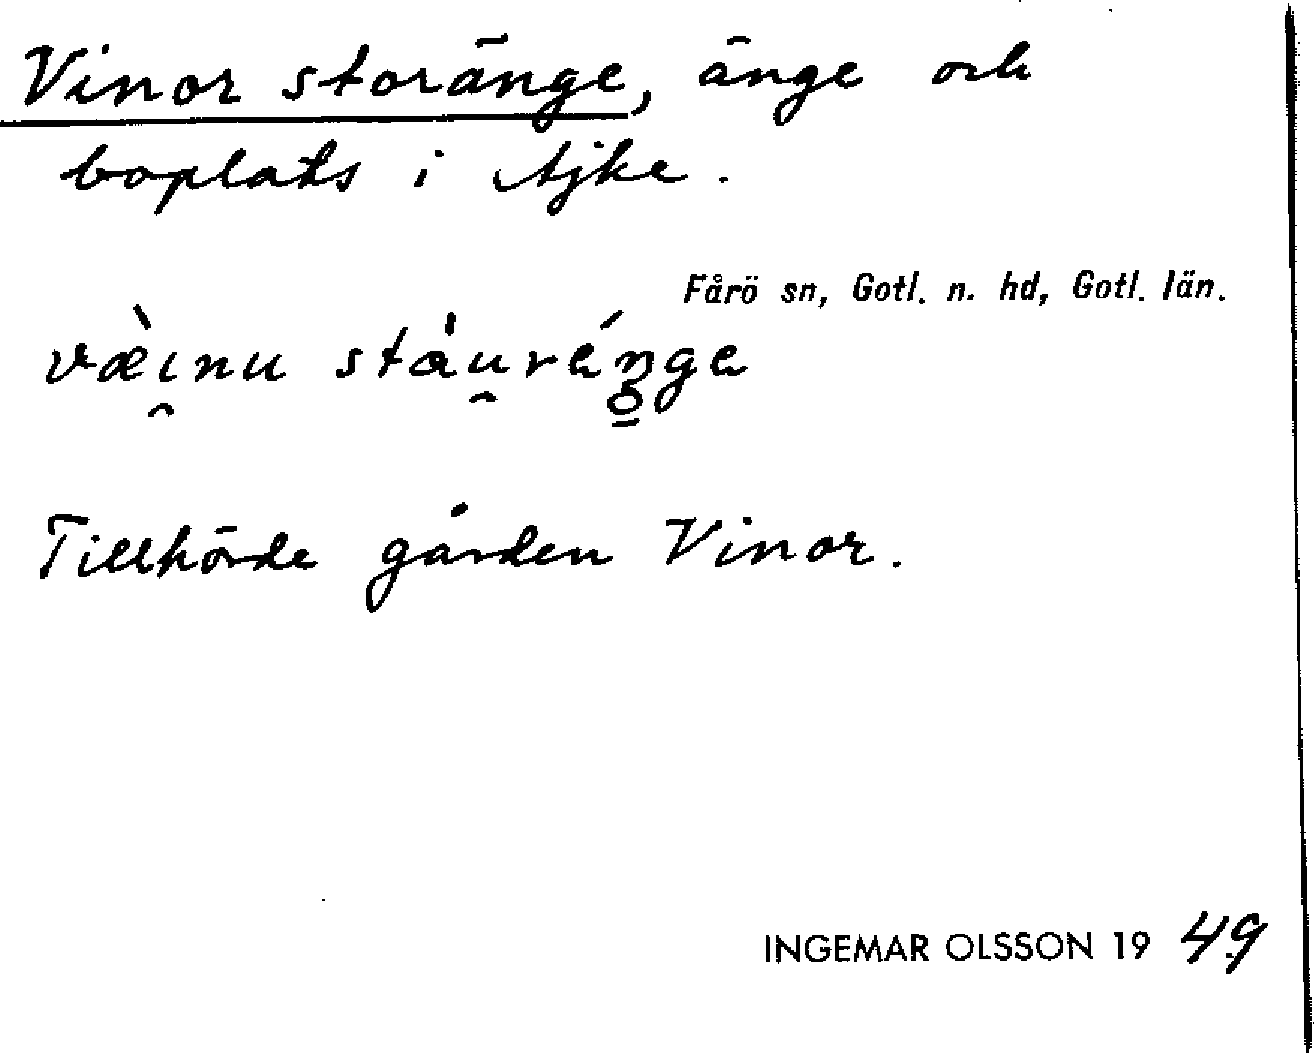 Vinor storänge, änge och
boplats i Ajke.
Fårö sn, Gotl. n. hd, Gotl. län.
væ̀i̯nu stàu̯réŋ̱ge
Tillhörde gården Vinor.
INGEMAR OLSSON 19 49